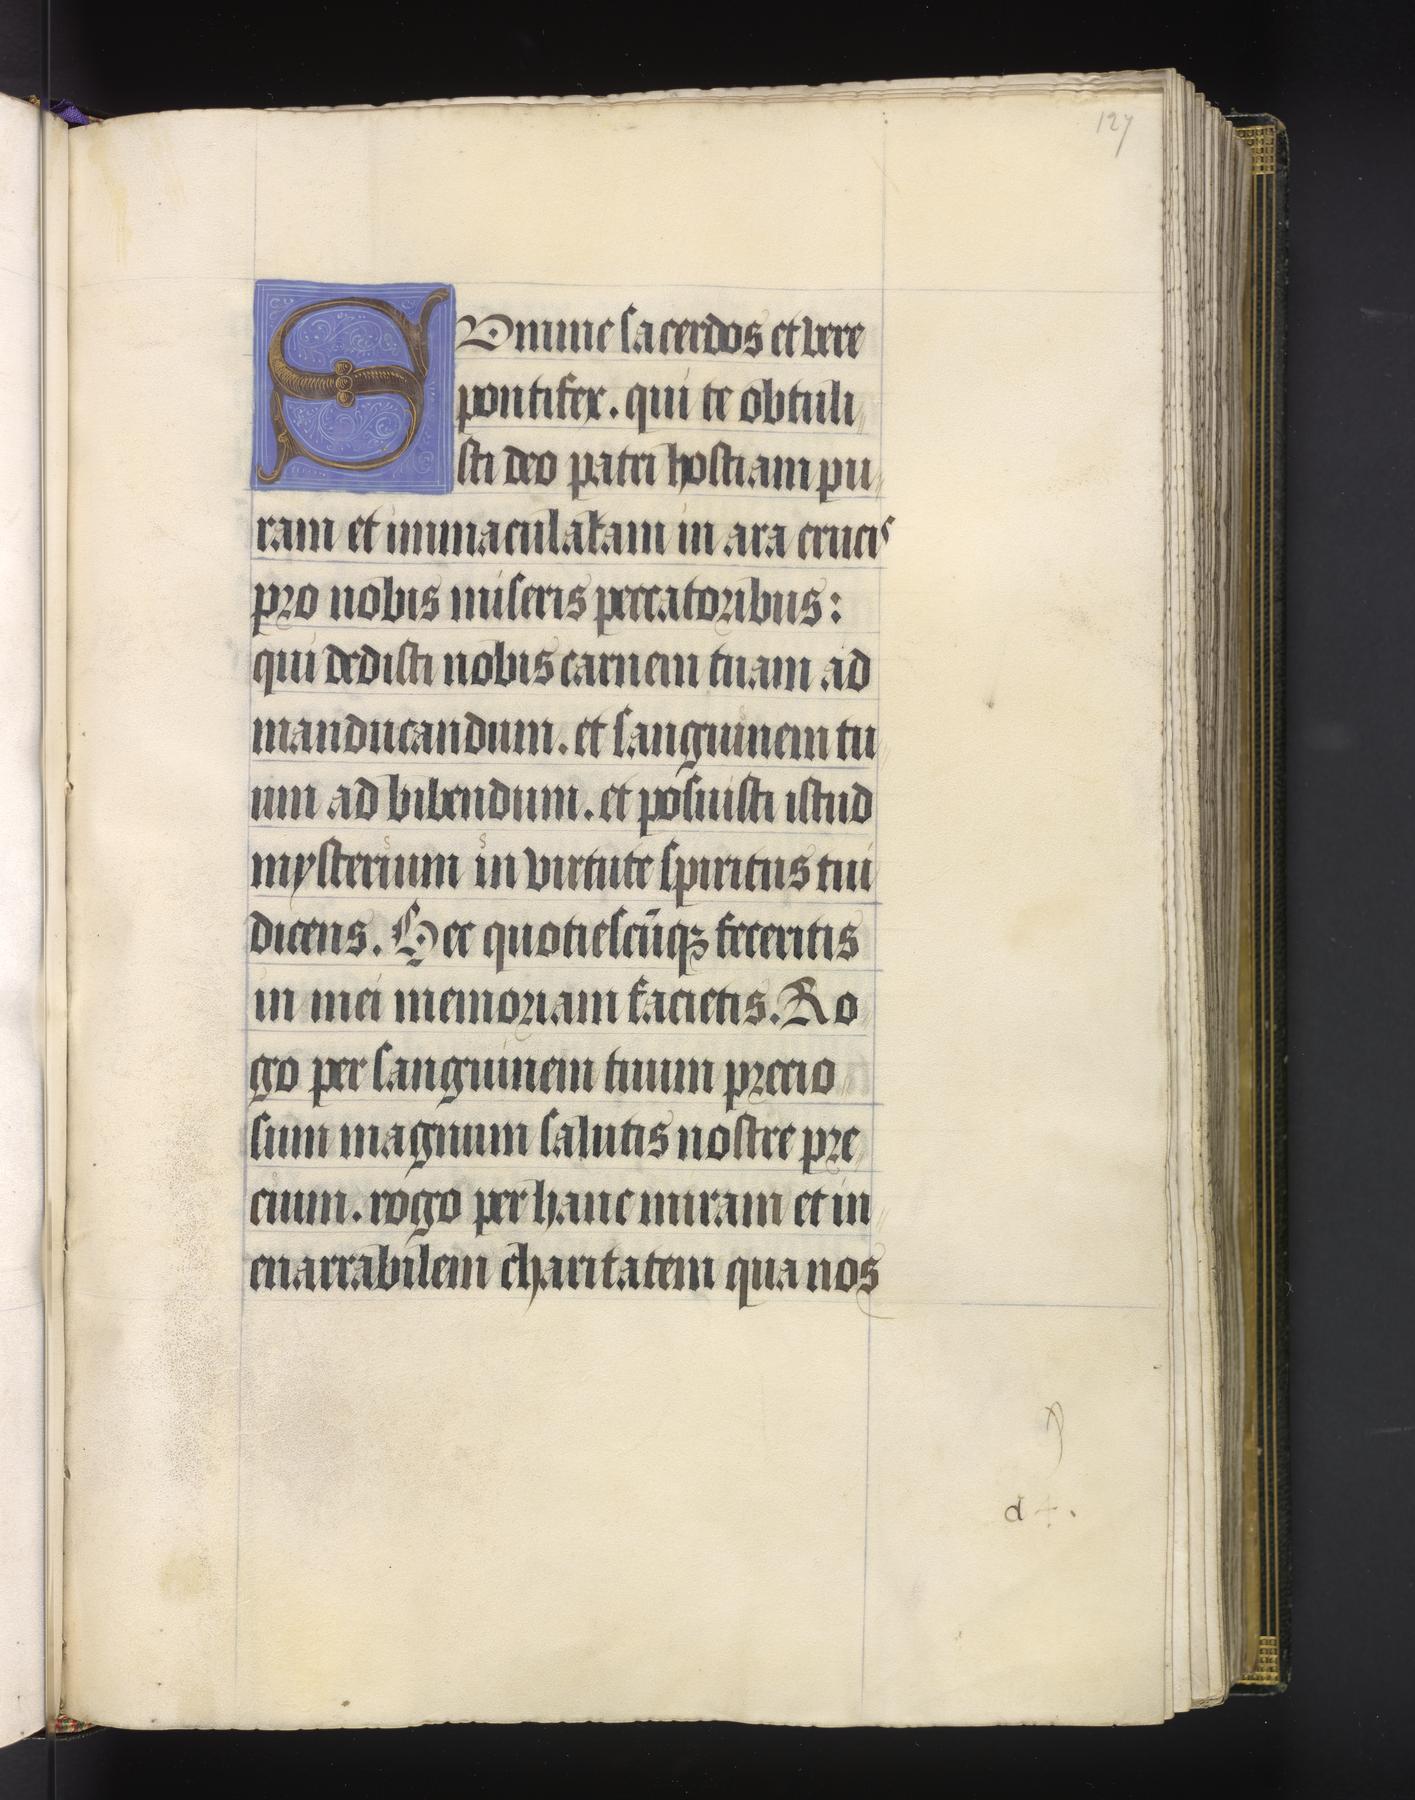 127
SUmme sacerdos et vere
pontifex. qui te obtuli
sti deo patri hostiam pu
ram et immaculatam in ara crucis
pro nobis miseris peccatoribus:
qui dedisti nobis carnem tuam ad
manducandum. et sanguinem tu
um ad bibendum. et posuisti istud
mysterium in virtute spiritus tui
dicens. Hec quotiescūqꝫ feceritis
in mei memoriam facietis. Ro
go per sanguinem tuum precio
sum magnum salutis nostre pre
cium. rogo per hanc miram et in
enarrabilem charitatem qua nos